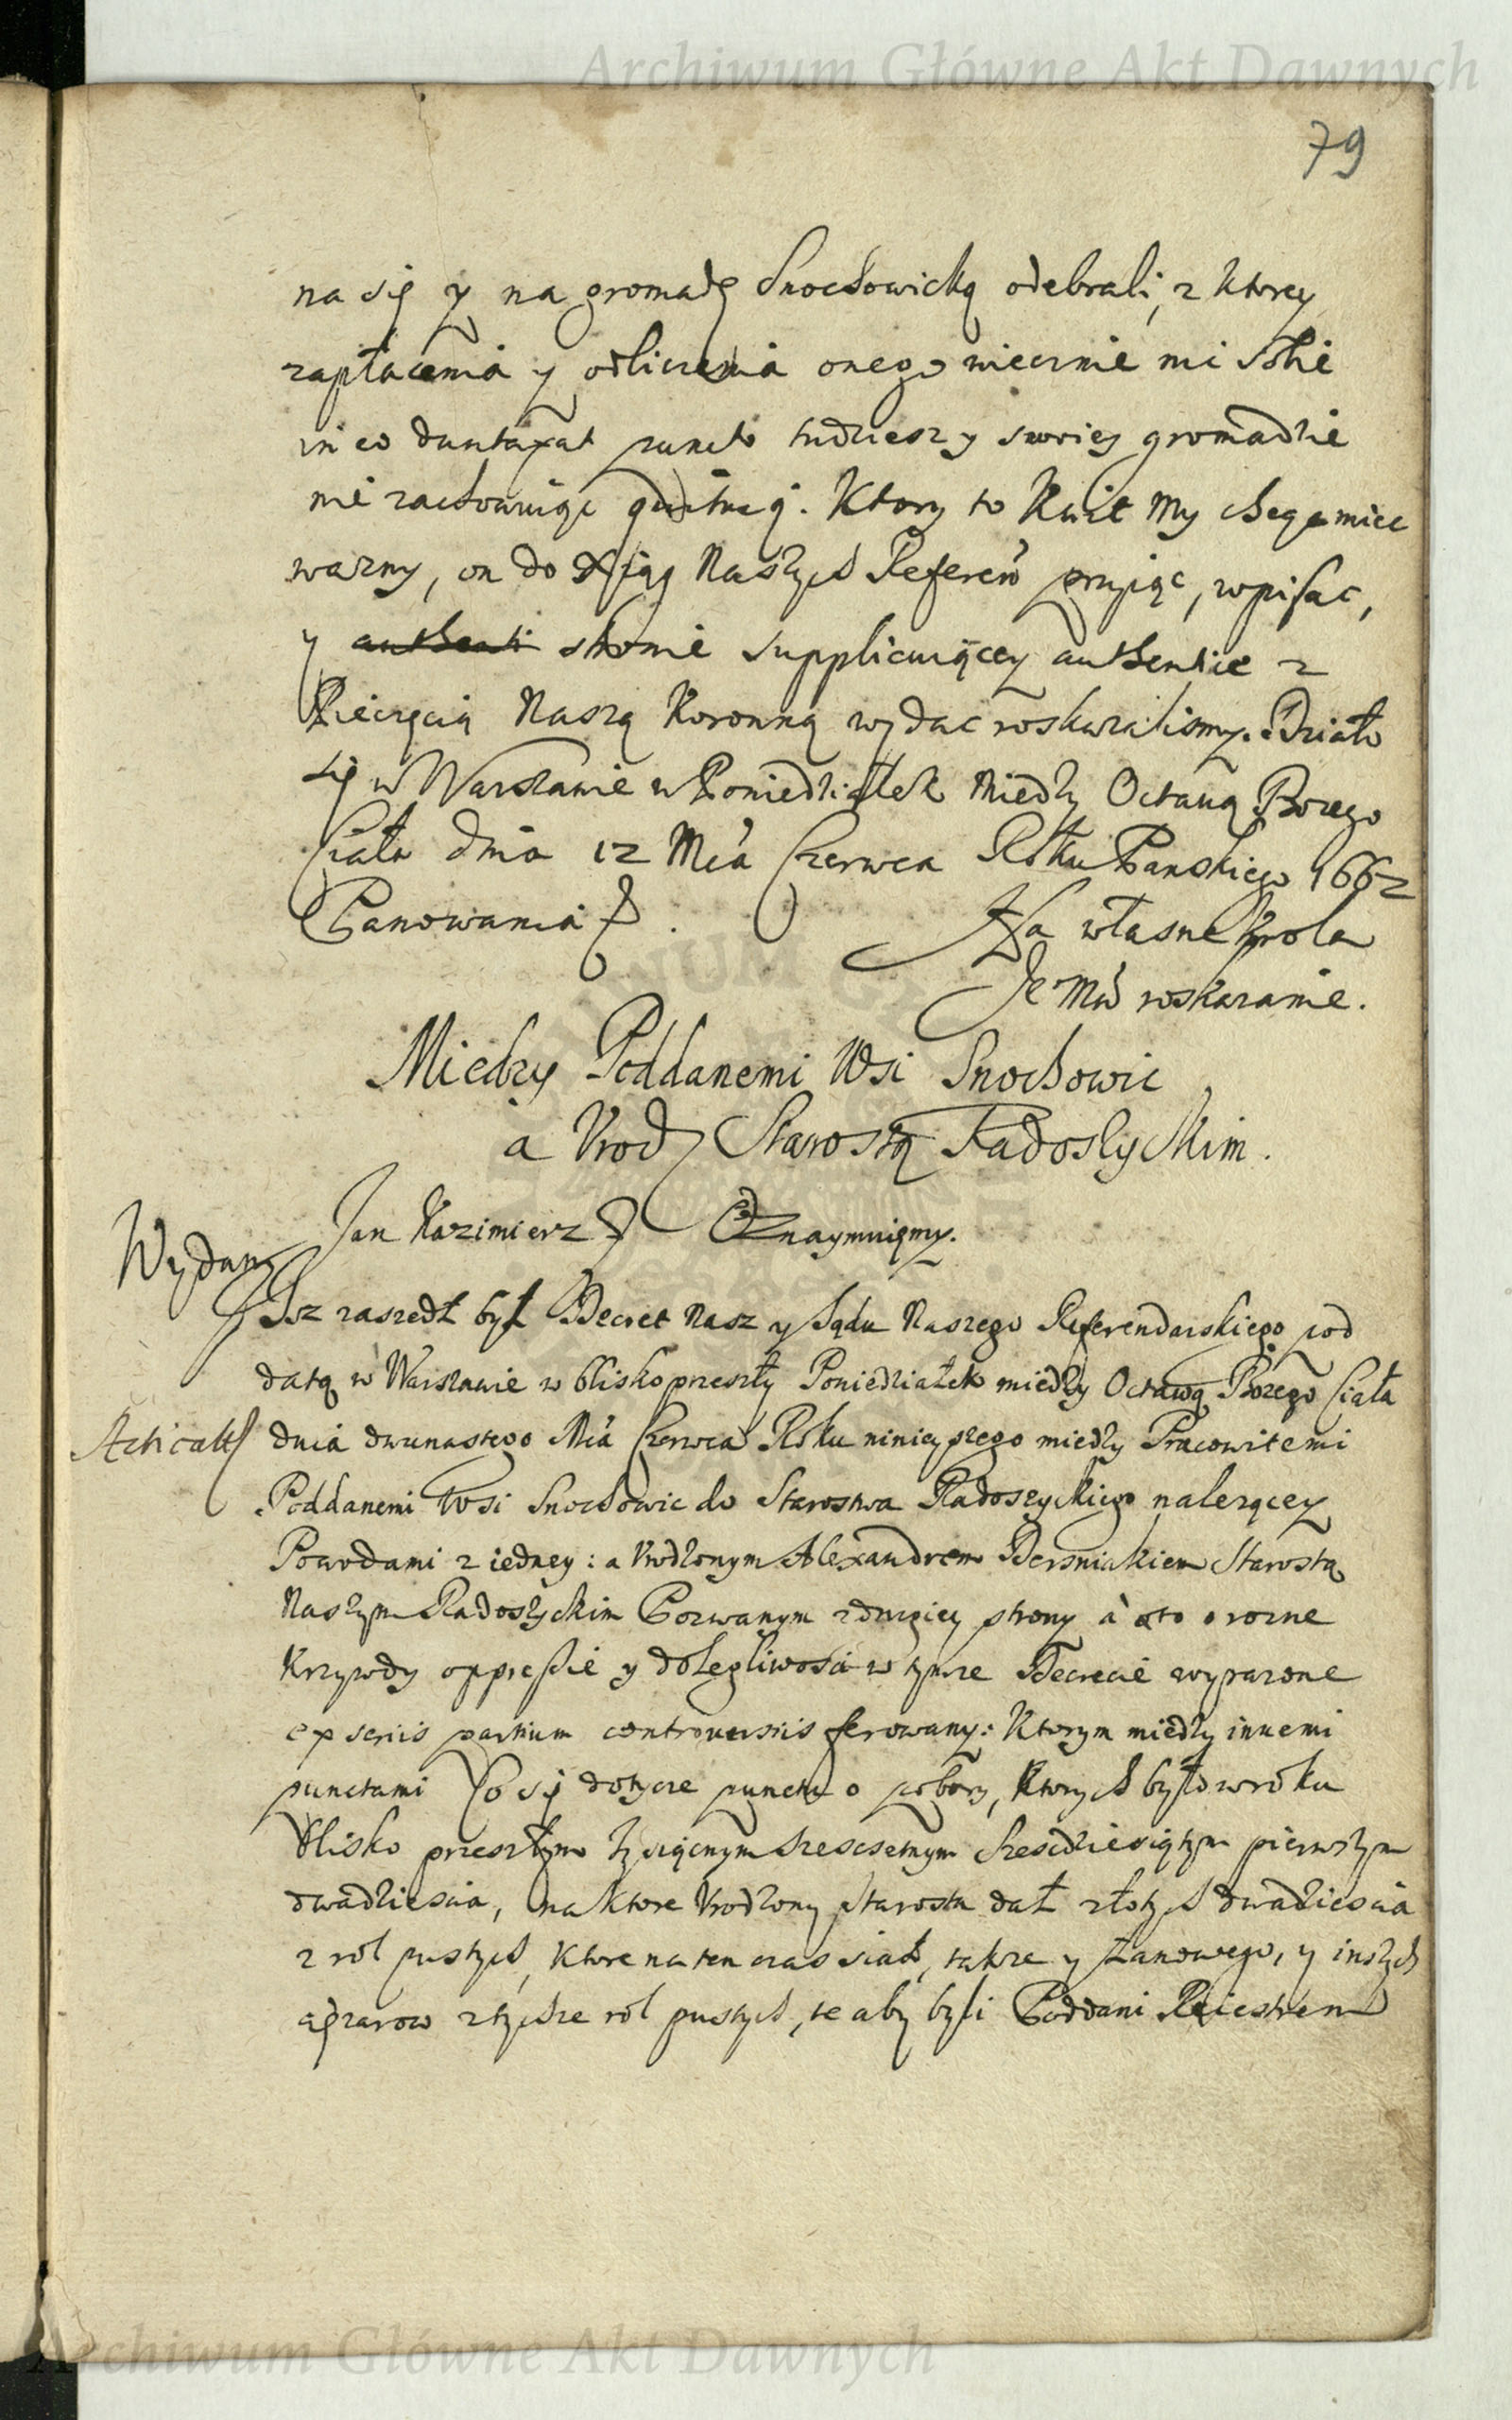 Archiwum Główne Akt Dawnych
79
na się y na gromadę Snochowicką odebrali, z ktorey
zapłacenia y odliczenia onego wiecznie nic sobie
in eo duntaxat puncto tudziesz y swoiey gromadzie
nie zachowuiąc quituią. Ktory to Kwit My chcąc miec
wazny, on do Xiąg Naszych Referen̄ przyiąc, wpisac,
y authenti stronie supplicuiącey authentice z
Pieczęcią Naszą Koronną wydac roskazalismy. Działo
się w Warszawie w Poniedziałek miedzy Octawą Bozego
Ciała dnia 12 Mca Czerwca Roku Panskiego 1662
Panowania
Na własne Krola
Je Mci roskazanie.
Miedzy Poddanemi Wsi Snochowic
a Urodz Starostą Radoszyckim.
Jan Kazimierz Oznaymuięmy.
Wydany
Isz zaszedł był Decret Nasz y Sądu Naszego Referendarskiego pod
datą w Warszawie w blisko przeszły Poniedziałek miedzy Octawą Bożego Ciała
dnia dwunastego Mca Czerwca Roku ninieyszego miedzy Pracowitemi
Poddanemi Wsi Snochowic do Starostwa Radoszyckiego nalezącey
Powodami z iedney: a Urodzonym Alexandrem Bersniakiem Starostą
Naszym Radoszyckim Pozwanym z drugiey strony a to o rozne
Krzywdy oppressie y dolegliwosci w tymze Decrecie wyrazone
ex seriis partium controversiis ferowany: Ktorym miedzy innemi
punctami Co się dotycze punctu o pobory, ktorych było w roku
blisko przeszłym tysiącnym szescsetnym szescdziesiątym pierwszym
dwadziescia, na ktore Urodzony Starosta dał złotych dwadziescia
z rol pustych, ktore na ten czas siał, takze y Łanowego, y inszych
cięzarow z tychze rol pustych, te aby byli Poddani Reiestrem
Archiwum Główne Akt Dawnych